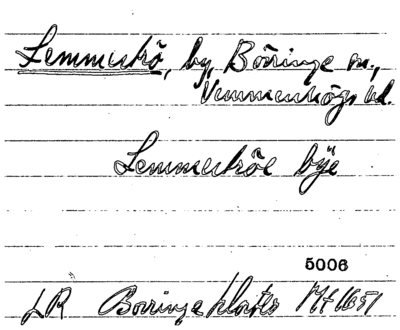 Lemmeströ, by, Börringe sn.,
Vemmenhögs hd.
Lemmeströe bÿe
5006
LR Börringekloster Mf 1651